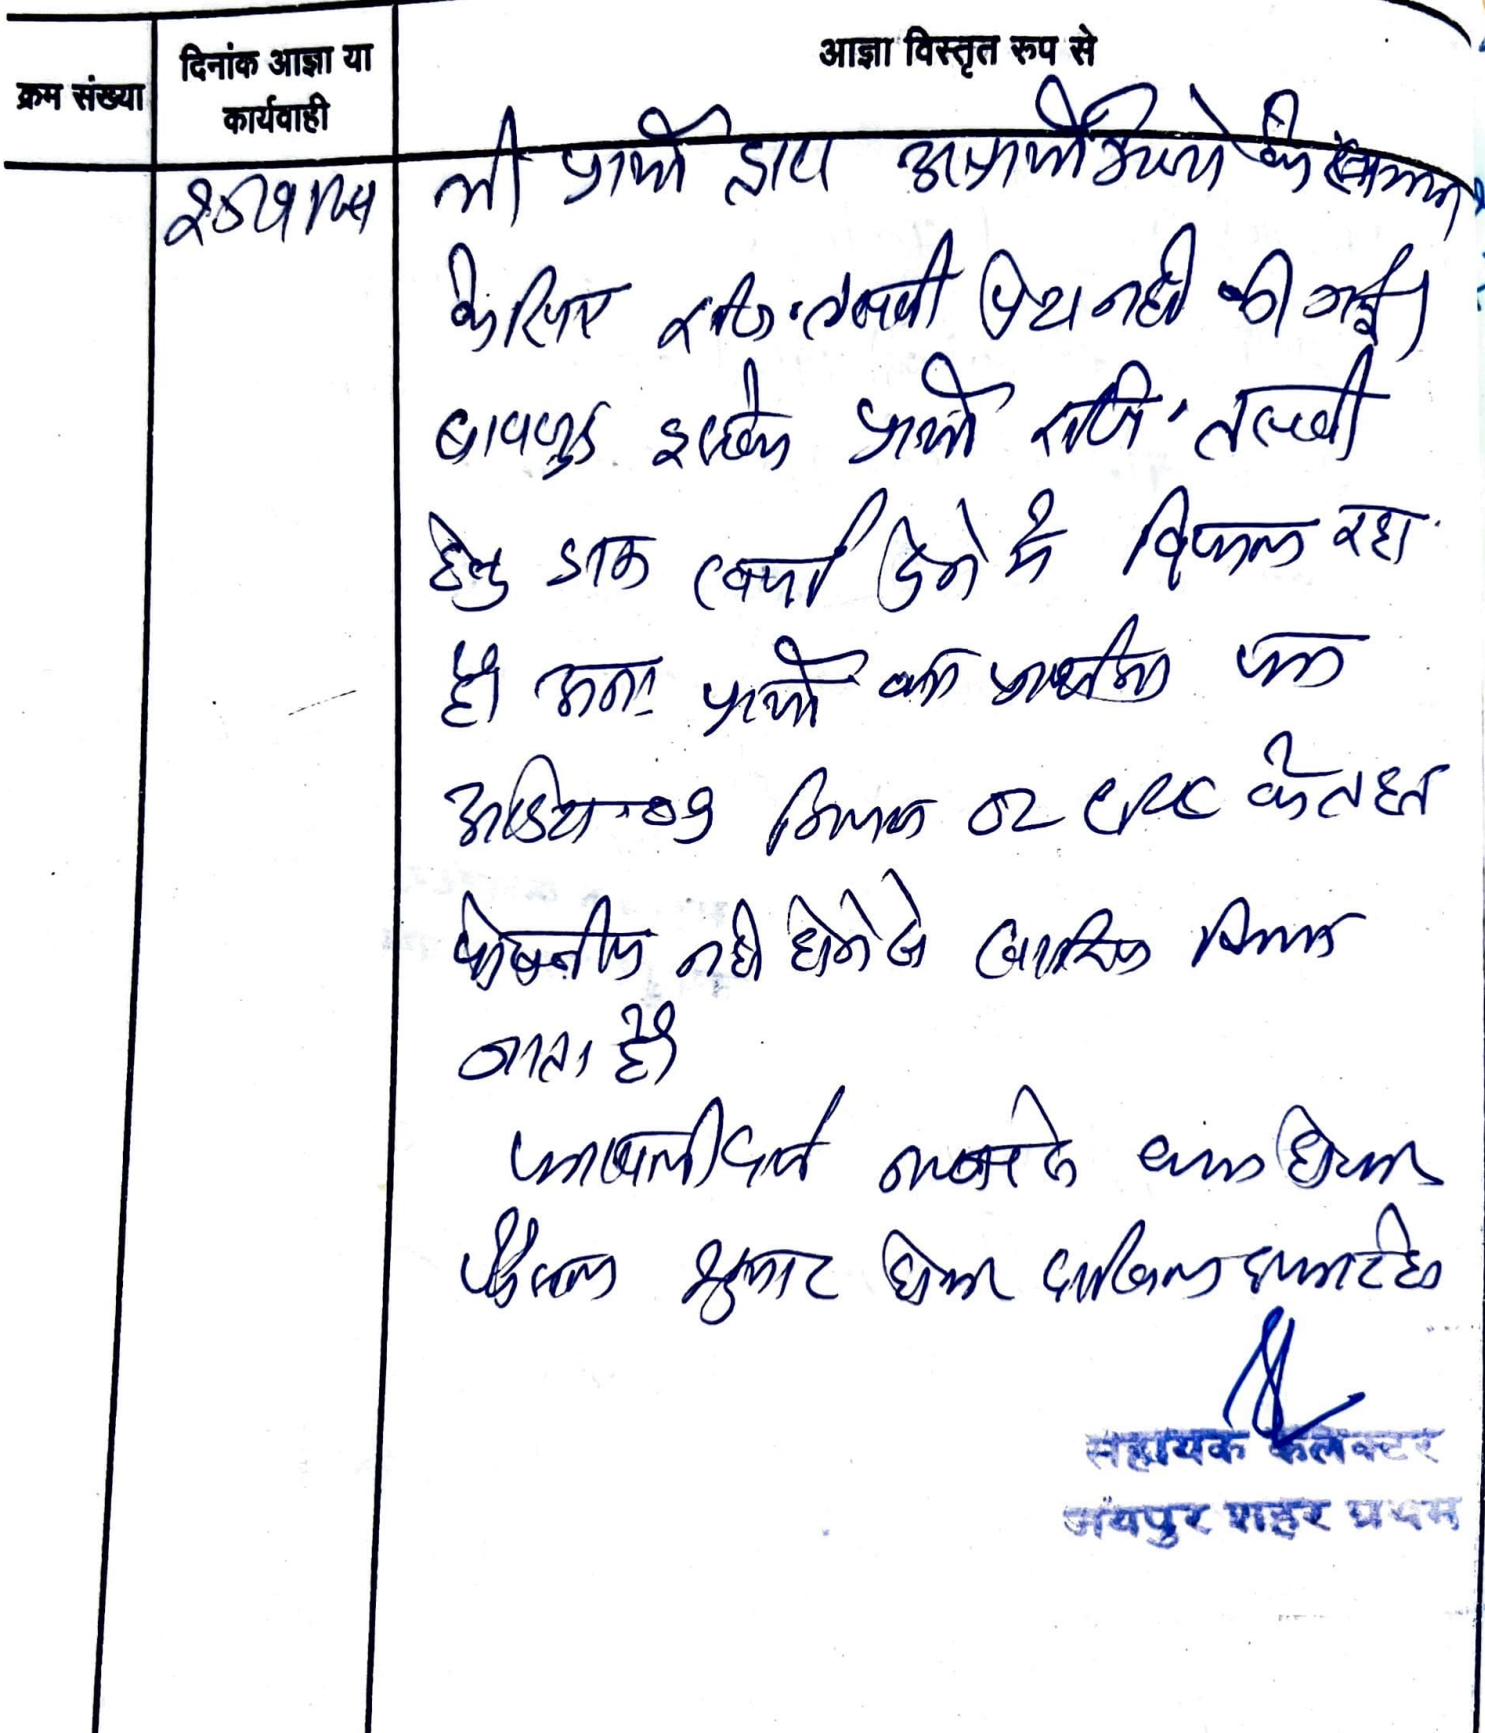 क्रम संख्या
दिनांक आज्ञा या
कार्यवाही
आज्ञा विस्तृत रूप से
भी प्रार्थी द्वारा अप्रार्थीगणों के
के लिए रजि. तलबी पेश नहीं की गई।
बावजूद इसके प्रार्थी रजि. तलबी
हेतु डाक खर्चा देने में विफल रहा
है। अतः प्रार्थी का प्रार्थना पत्र
आदेश 09 नियम 02 CPC के तहत
पोषनीय नहीं होने से खारिज किया
जाता है।
पत्रावली दर्ज नम्बर से कम होकर
फैसल शुमार होकर दाखिल दफ्तर हो
सहायक कलक्टर
जयपुर शहर प्रथम